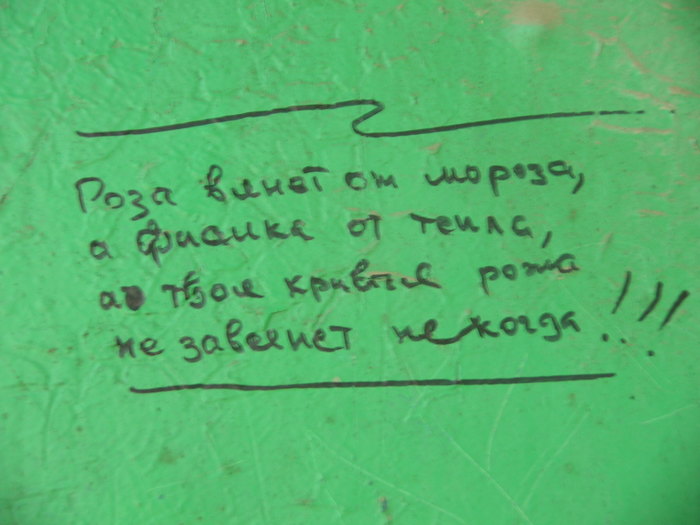 Роза вянет от мороза,
а фиалка от тепла,
а твоя кривая рожа
не завянет не когда...!!!